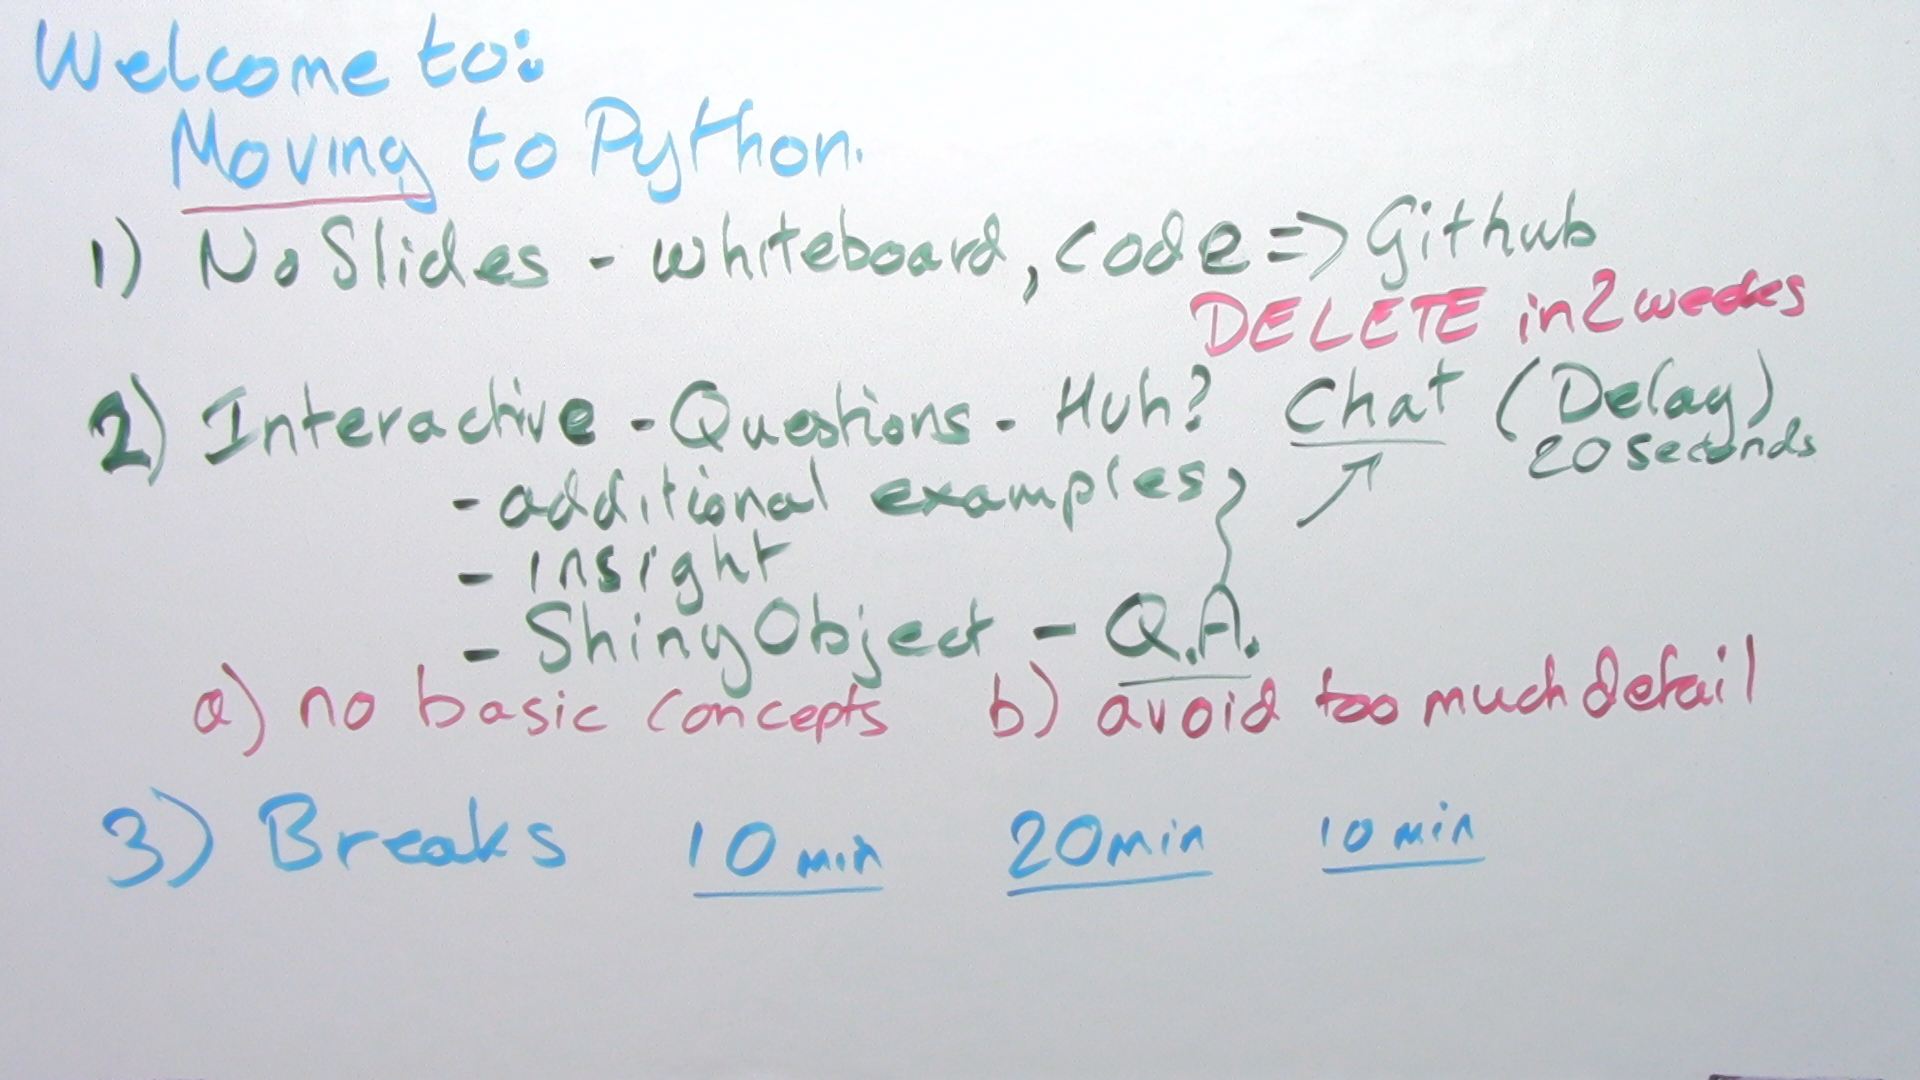 Welcome to:
Moving to Python.
1) No Slides - whiteboard, code => Github
DELETE in 2 weeks
2) Interactive - Questions - Huh? Chat (Delay)
20 seconds
- additional examples
- insight
- Shiny Object - Q.A.
a) no basic concepts b) avoid too much detail
3) Breaks 10 min 20 min 10 min